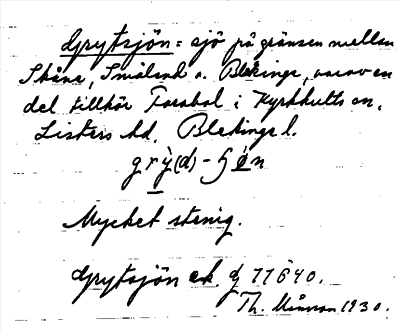 Grytsjön = sjö på gränsen mellan
Skåne, Småland o. Blekinge, varav en
del tillhör Farabol i Kyrkhults sn,
Listers hd. Blekinge l.
grỳ(d)-
Mycket stenig.
Grytsjön ek. 77640.
Th. 1930.